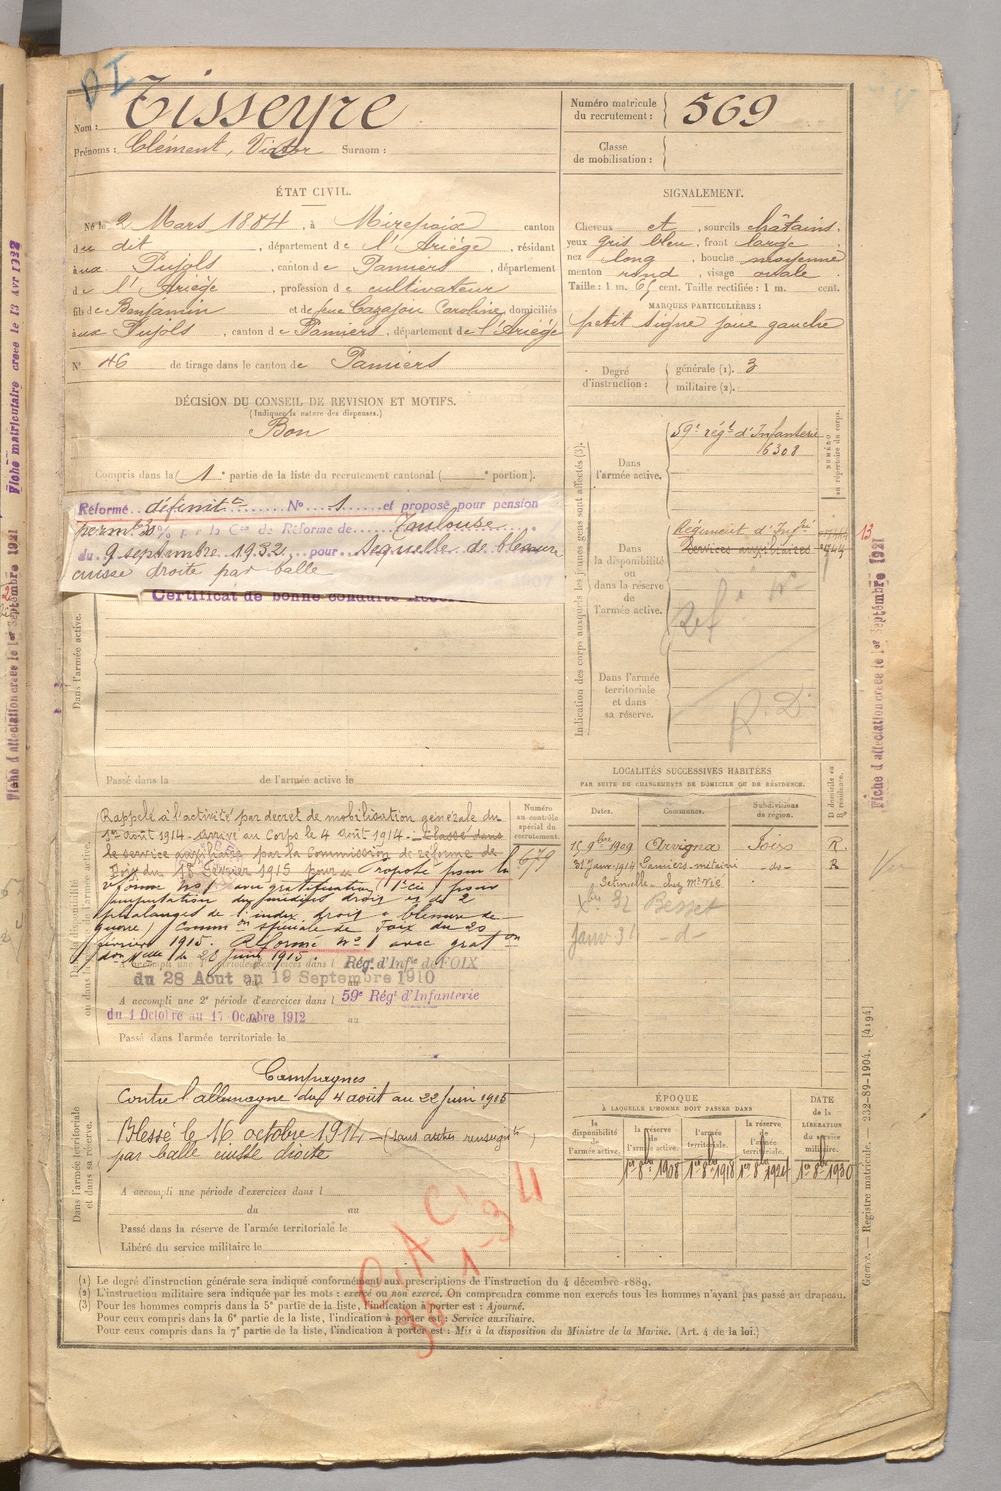 DI
Nom : Tisseyre
Prénoms : Clément, Victor Surnom :
Numéro matricule du recrutement : 569
Classe de mobilisation :
ÉTAT CIVIL.
Né le 2 Mars 1884, à Mirepoix canton
du dit, département de l'Ariège, résidant
à aux Pujols, canton de Pamiers, département
de l'Ariège, profession de cultivateur
fils de Benjamin et de feue Cazajou Caroline, domiciliés
à aux Pujols, canton de Pamiers, département de l'Ariège
N° 46 de tirage dans le canton de Pamiers
SIGNALEMENT.
Cheveux et, sourcils châtains.
yeux gris bleu, front large
nez long, bouche moyenne
menton rond, visage ovale
Taille : 1 m. 65 cent. Taille rectifiée : 1 m. cent.
MARQUES PARTICULIÈRES :
petit signe joue gauche
Degré d'instruction : générale (1). 3
militaire (2).
DÉCISION DU CONSEIL DE REVISION ET MOTIFS.
(Indiquer la nature des dispenses.)
Bon
Compris dans la 1e partie de la liste du recrutement cantonal ( e portion).
Réformé définitt N° 1 et proposé pour pension
permte 30 % par la Con de Réforme de Toulouse
du 9 septembre 1932 pour Sequelle de blessure
cuisse droite par balle
Certificat de bonne conduite
Dans l'armée active.
Passé dans la de l'armée active le
Indication des corps auxquels les jeunes gens sont affectés (3).
NUMÉRO au répertoire du corps.
Dans l'armée active.
59e régt d'Infanterie
16308
Dans la disponibilité ou dans la réserve de l'armée active.
Régiment d'Infrie
Services auxiliaires
944
13
Dans l'armée territoriale et dans sa réserve.
R. D.
Fiche d'affectation créée le 1er Septembre 1921
Fiche matriculaire créée le 13 Avr 1922
Fiche d'affectation créée le 1er Septembre 1921
LOCALITÉS SUCCESSIVES HABITÉES
PAR SUITE DE CHANGEMENTS DE DOMICILE OU DE RÉSIDENCE.
Dates. Communes. Subdivisions de région. D domicile ou R résidence.
15 9bre 1909 Arvigna Foix R.
31 Janv. 1914 Pamiers-métairie -do- R
chez Mr Vié
Xbre 32 Besset
Janv 34 -d-
Rappelé à l'activité par décret de mobilisation générale du
1er août 1914. arrivé au Corps le 4 août 1914. Classé dans
le service auxiliaire par la Commission de réforme de
Foix du 18 février 1915 pour Proposé pour la
réforme N° 1 avec gratification pour
amputation droit et de 2
phalanges de l'index droit blessure de
guerre, Common spéciale de Foix du 20
février 1915. Réformé N° 1 avec graton
Numéro au contrôle spécial du recrutement.
679
A accompli une 1e période d'exercices dans l Régt d'Infie de FOIX
du 28 Aout au 19 Septembre 1910
A accompli une 2e période d'exercices dans l 59e Régt d'Infanterie
du 1 Octobre au 17 Octobre 1912
Passé dans l'armée territoriale le
Campagnes
Contre l'allemagne du 4 août au 22 juin 1915
Blessé le 16 octobre 1914 - (sans autres renseignts)
par balle cuisse droite
Dans l'armée territoriale et dans sa réserve.
A accompli une période d'exercices dans l
du au
Passé dans la réserve de l'armée territoriale le
Libéré du service militaire le
ÉPOQUE
À LAQUELLE L'HOMME DOIT PASSER DANS
la disponibilité de l'armée active. la réserve de l'armée active. l'armée territoriale. la réserve de l'armée territoriale. DATE de la LIBÉRATION du service militaire.
1er 8bre 1908 1er 8bre 1918 1er 8bre 1924 1er 8bre 1930
Guerre. — Registre matricule. 232-89-1904. [4194]
(1) Le degré d'instruction générale sera indiqué conformément aux prescriptions de l'instruction du 4 décembre 1889.
(2) L'instruction militaire sera indiquée par les mots : exercé ou non exercé. On comprendra comme non exercés tous les hommes n'ayant pas passé au drapeau.
(3) Pour les hommes compris dans la 5e partie de la liste, l'indication à porter est : Ajourné.
Pour ceux compris dans la 6e partie de la liste, l'indication à porter est : Service auxiliaire.
Pour ceux compris dans la 7e partie de la liste, l'indication à porter est : Mis à la disposition du Ministre de la Marine. (Art. 4 de la loi.)